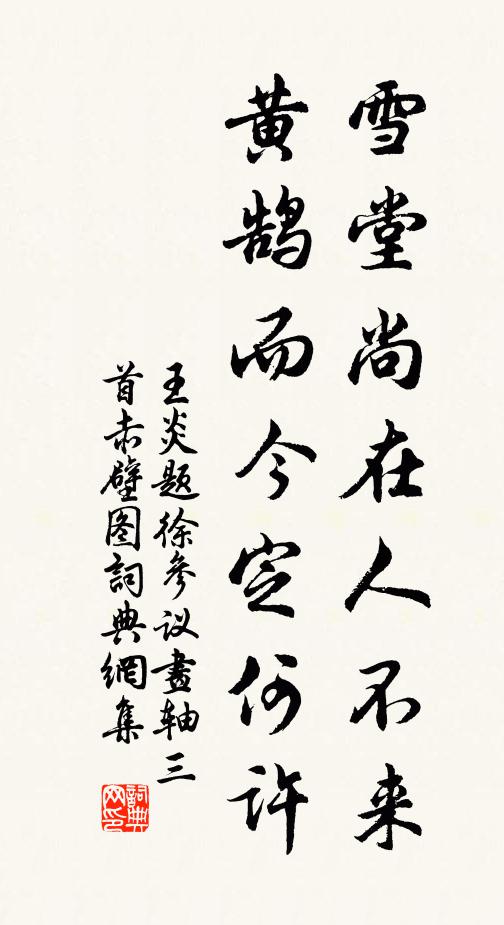 雪堂尚在人不来
黄鹄而今定何许
王炎题徐参议畫轴三
首赤壁图詞典網集
詞典网印